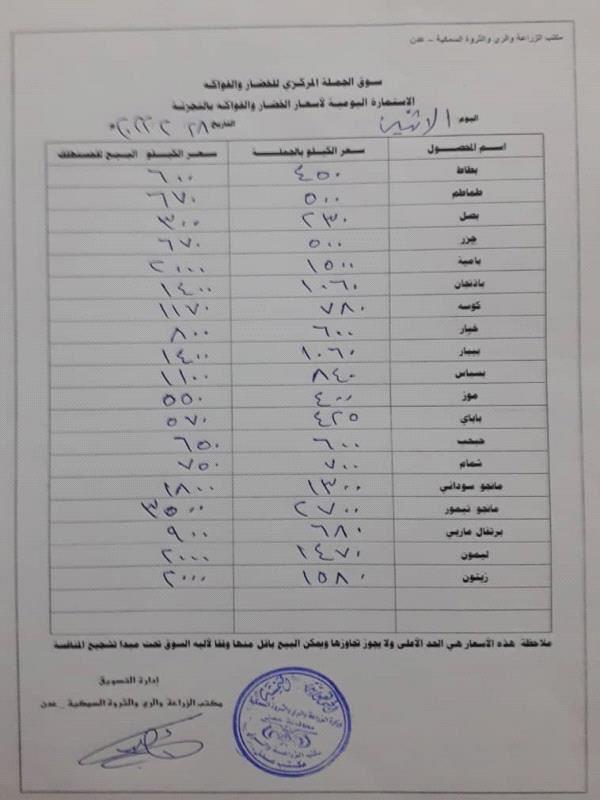 مكتب الزراعة والري والثروة السمكية - عدن
سوق الجملة المركزي للخضار والفواكه
الاستمارة اليومية لأسعار الخضار والفواكه بالتجزئة
اليوم: الاثنين التاريخ ٢٨
اسم المحصول سعر الكيلو بالجملة سعر الكيلو البيع للمستهلك
بطاط ٤٥٠ ٦٠٠
طماطم ٥٠٠ ٦٧٠
بصل ٢٣٠ ٣٠٠
جزر ٥٠٠ ٦٧٠
بامية ١٥٠٠ ٢٠٠٠
باذنجان ١٠٦٠ ١٤٠٠
كوسه ٧٨٠ ١١٧٠
خيار ٦٠٠ ٨٠٠
بيبار ١٠٦٠ ١٤٠٠
بسباس ٨٤٠ ١١٠٠
موز ٤٠٠ ٥٥٠
باباي ٤٢٥ ٥٧٠
حبحب ٦٠٠ ٦٥٠
شمام ٧٠٠ ٧٥٠
مانجو سوداني ١٣٠٠ ١٨٠٠
مانجو تيمور ٢٧٠٠ ٣٥٠٠
برتقال ماربي ٦٨٠ ٩٠٠
ليمون ١٤٧٠ ٢٠٠٠
زيتون ١٥٨٠ ٢٠٠٠
ملاحظة هذه الأسعار هي الحد الأعلى ولا يجوز تجاوزها ويمكن البيع باقل منها وفقا لآليه السوق تحت مبدا تشجيع المنافسة
إدارة التسويق
مكتب الزراعة والري والثروة السمكية - عدن